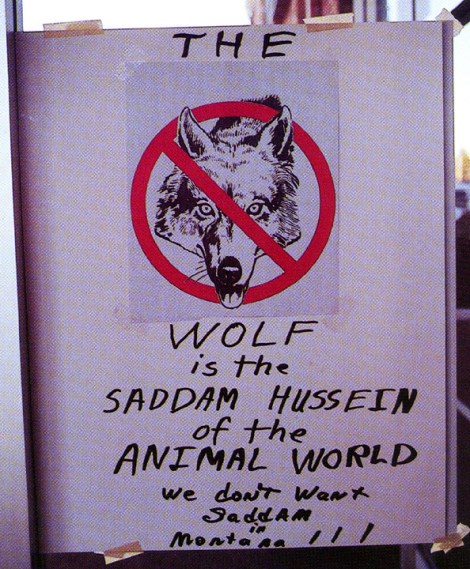 THE
WOLF
is the
SADDAM HUSSEIN
of the
ANIMAL WORLD
we don't want
SaddAM
in
Montana !!!